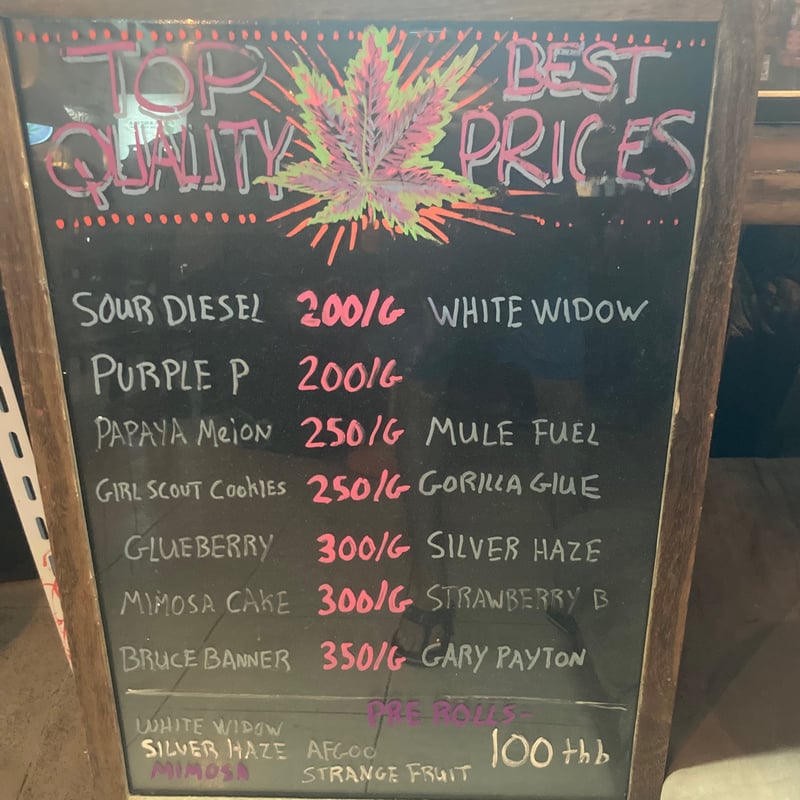 TOP BEST
QUALITY PRICES
SOUR DIESEL 200/G WHITE WIDOW
PURPLE P 200/G
PAPAYA MelON 250/G MULE FUEL
GIRL SCOUT COOKIES 250/G GORILLA GlUE
GLUEBERRY 300/G SILVER HAZE
MIMOSA CAKE 300/G STRAWBERRY B
BRUCE BANNER 350/G GARY PAYTON
PRE ROLLS-
WHITE WIDOW
SILVER HAZE AFGOO 100 thb
MIMOSA STRANGE FRUIT